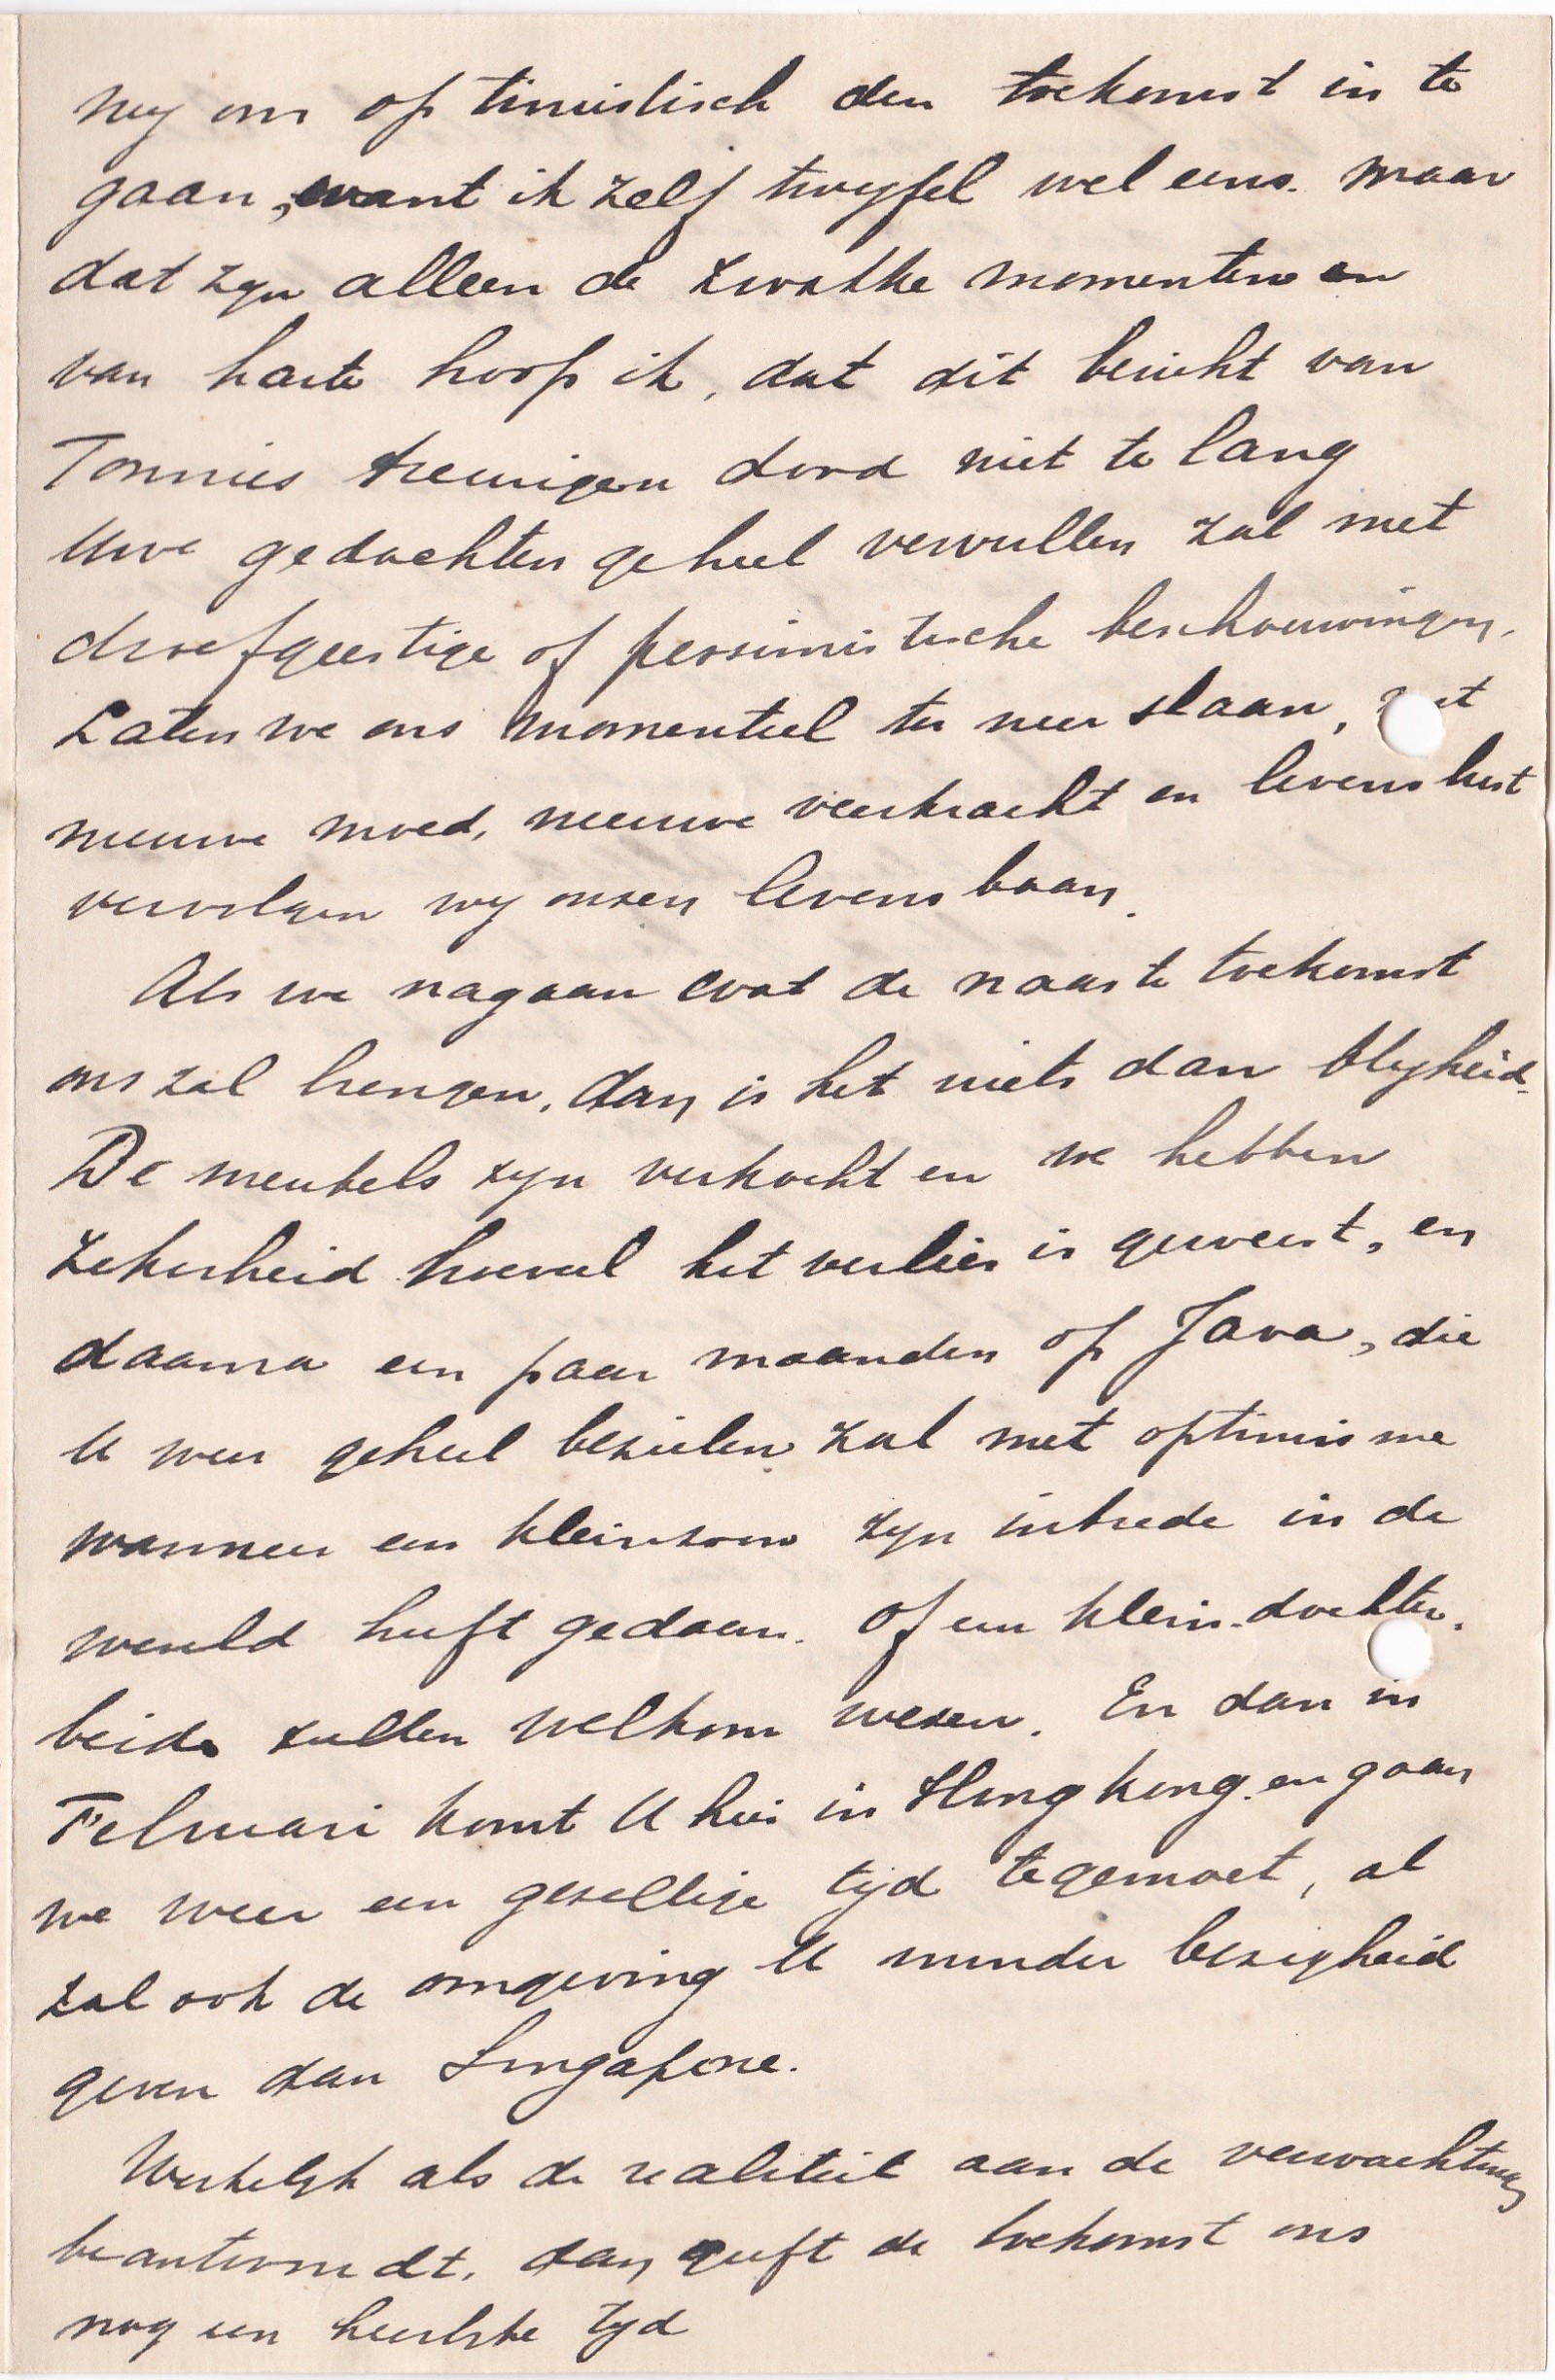 my om optimistisch den toekomst in te
gaan, want ik zelf twyfel wel eens. maar
dat zyn alleen de zwakke momenten en
van harte hoop ik, dat dit bericht van
Tonnies treurigen dood niet te lang
Uwe gedachten geheel vervullen zal met
droefgeestige of pessimistische beschouwingen.
Laten we ons momenteel ter neer slaan,
nieuwe moed, nieuwe veerkracht en levenslust
vervolgen wy onzen levensbaan.
Als we nagaan wat de naaste toekomst
ons zal brengen, dan is het niets dan blyheid.
De meubels zyn verkocht en we hebben
zekerheid hoeveel het verlies is geweest, en
daarna een paar maanden op Java, die
U weer geheel bezielen zal met optimisme
wanneer een kleinzoon zyn intrede in de
wereld heeft gedaan. Of een klein-dochter.
beide zullen welkom wezen. En dan in
Februari komt U hier in Hongkong en gaan
we weer een gezellige tyd tegemoet, al
zal ook de omgeving U minder bezigheid
geven dan Singapore.
Werkelyk als de realiteit aan de verwachting
beantwoordt, dan geeft de toekomst ons
nog een heerlyke tyd